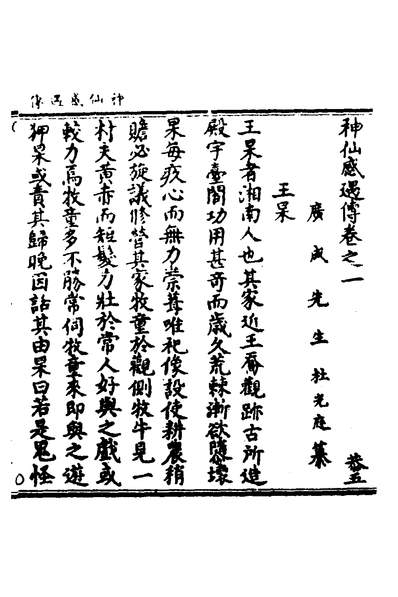 神仙感遇傳
神仙感遇傳卷之一 恭五
廣成先生杜光庭纂
王杲
王杲者湘南人也其家近王喬觀跡古所造
殿宇臺閣功用甚奇而歲久荒棘漸欲隳壞
杲每疚心而無力崇葺唯祀像設使耕農稍
贍必旋議修營其家牧童於觀側牧牛見一
村夫黃赤而短髮力壯於常人好與之戲或
較力焉牧童多不勝常伺牧童來即與之遊
狎杲或責其歸晚因話其由杲曰若是鬼怪